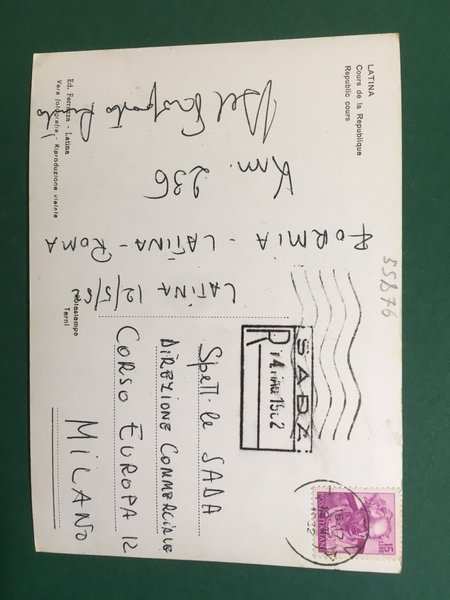 LATINA
Cours de la République
Republic cours
Km. 236
FORMIA - LATINA - ROMA
LATINA 12/5/62
Ed. Ferrazza - Latina
Vera fotografia - Riproduzione vietata
Terni
55876
SADA
R
Spett.le SADA
DIREZIONE COMMERCIALE
CORSO EUROPA 12
MILANO
15